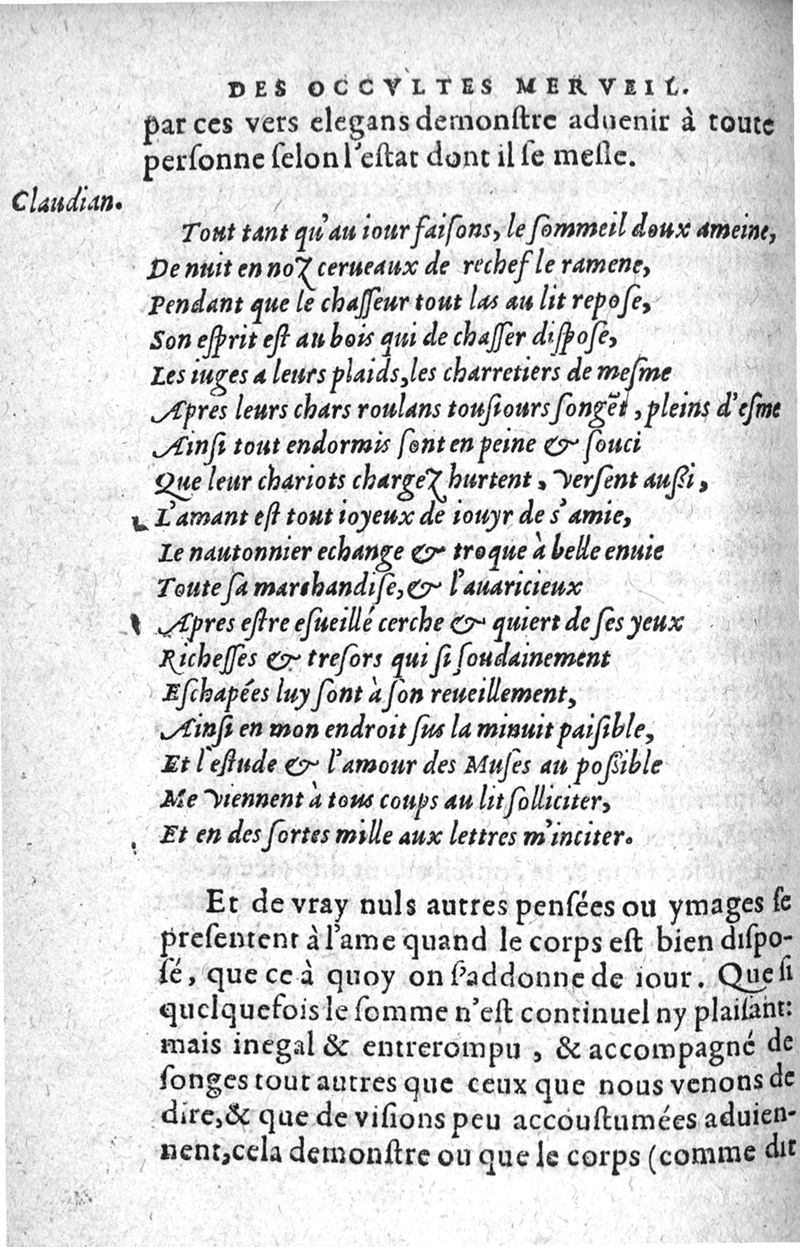 DES OCCVLTES MERVEIL.
par ces vers elegans demonſtre aduenir à toute
perſonne ſelon l'eſtat dont il ſe meſle.
Claudian.
Tout tant qu'au iour faiſons, le ſommeil doux ameine,
De nuit en noz cerueaux de rechef le ramene,
Pendant que le chaſſeur tout las au lit repoſe,
Son eſprit eſt au bois qui de chaſſer diſpoſe,
Les iuges a leurs plaids, les charretiers de meſme
Apres leurs chars roulans touſiours songẽt, pleins d'eſme
Ainſi tout endormis ſont en peine & ſouci
Que leur chariots chargez hurtent, verſent auſsi,
L'amant eſt tout ioyeux de iouyr de s'amie,
Le nautonnier echange & troque à belle enuie
Toute ſa marchandiſe, & l'auaricieux
Apres eſtre eſueillé cerche & quiert de ſes yeux
Richeſſes & treſors qui ſi ſoudainement
Eſchapées luy ſont à ſon reueillement,
Ainſi en mon endroit ſus la minuit paiſible,
Et l'eſtude & l'amour des Muſes au poſsible
Me viennent à tous coups au lit ſolliciter,
Et en des ſortes mille aux lettres m'inciter.
Et de vray nuls autres penſées ou ymages ſe
preſentent à l'ame quand le corps eſt bien diſpo-
ſé, que ce à quoy on ſ'addonne de iour. Que ſi
quelquefois le ſomme n'eſt continuel ny plaiſant:
mais inegal & entrerompu, & accompagné de
ſonges tout autres que ceux que nous venons de
dire, & que de viſions peu accouſtumées aduien-
nent, cela demonſtre ou que le corps (comme dit